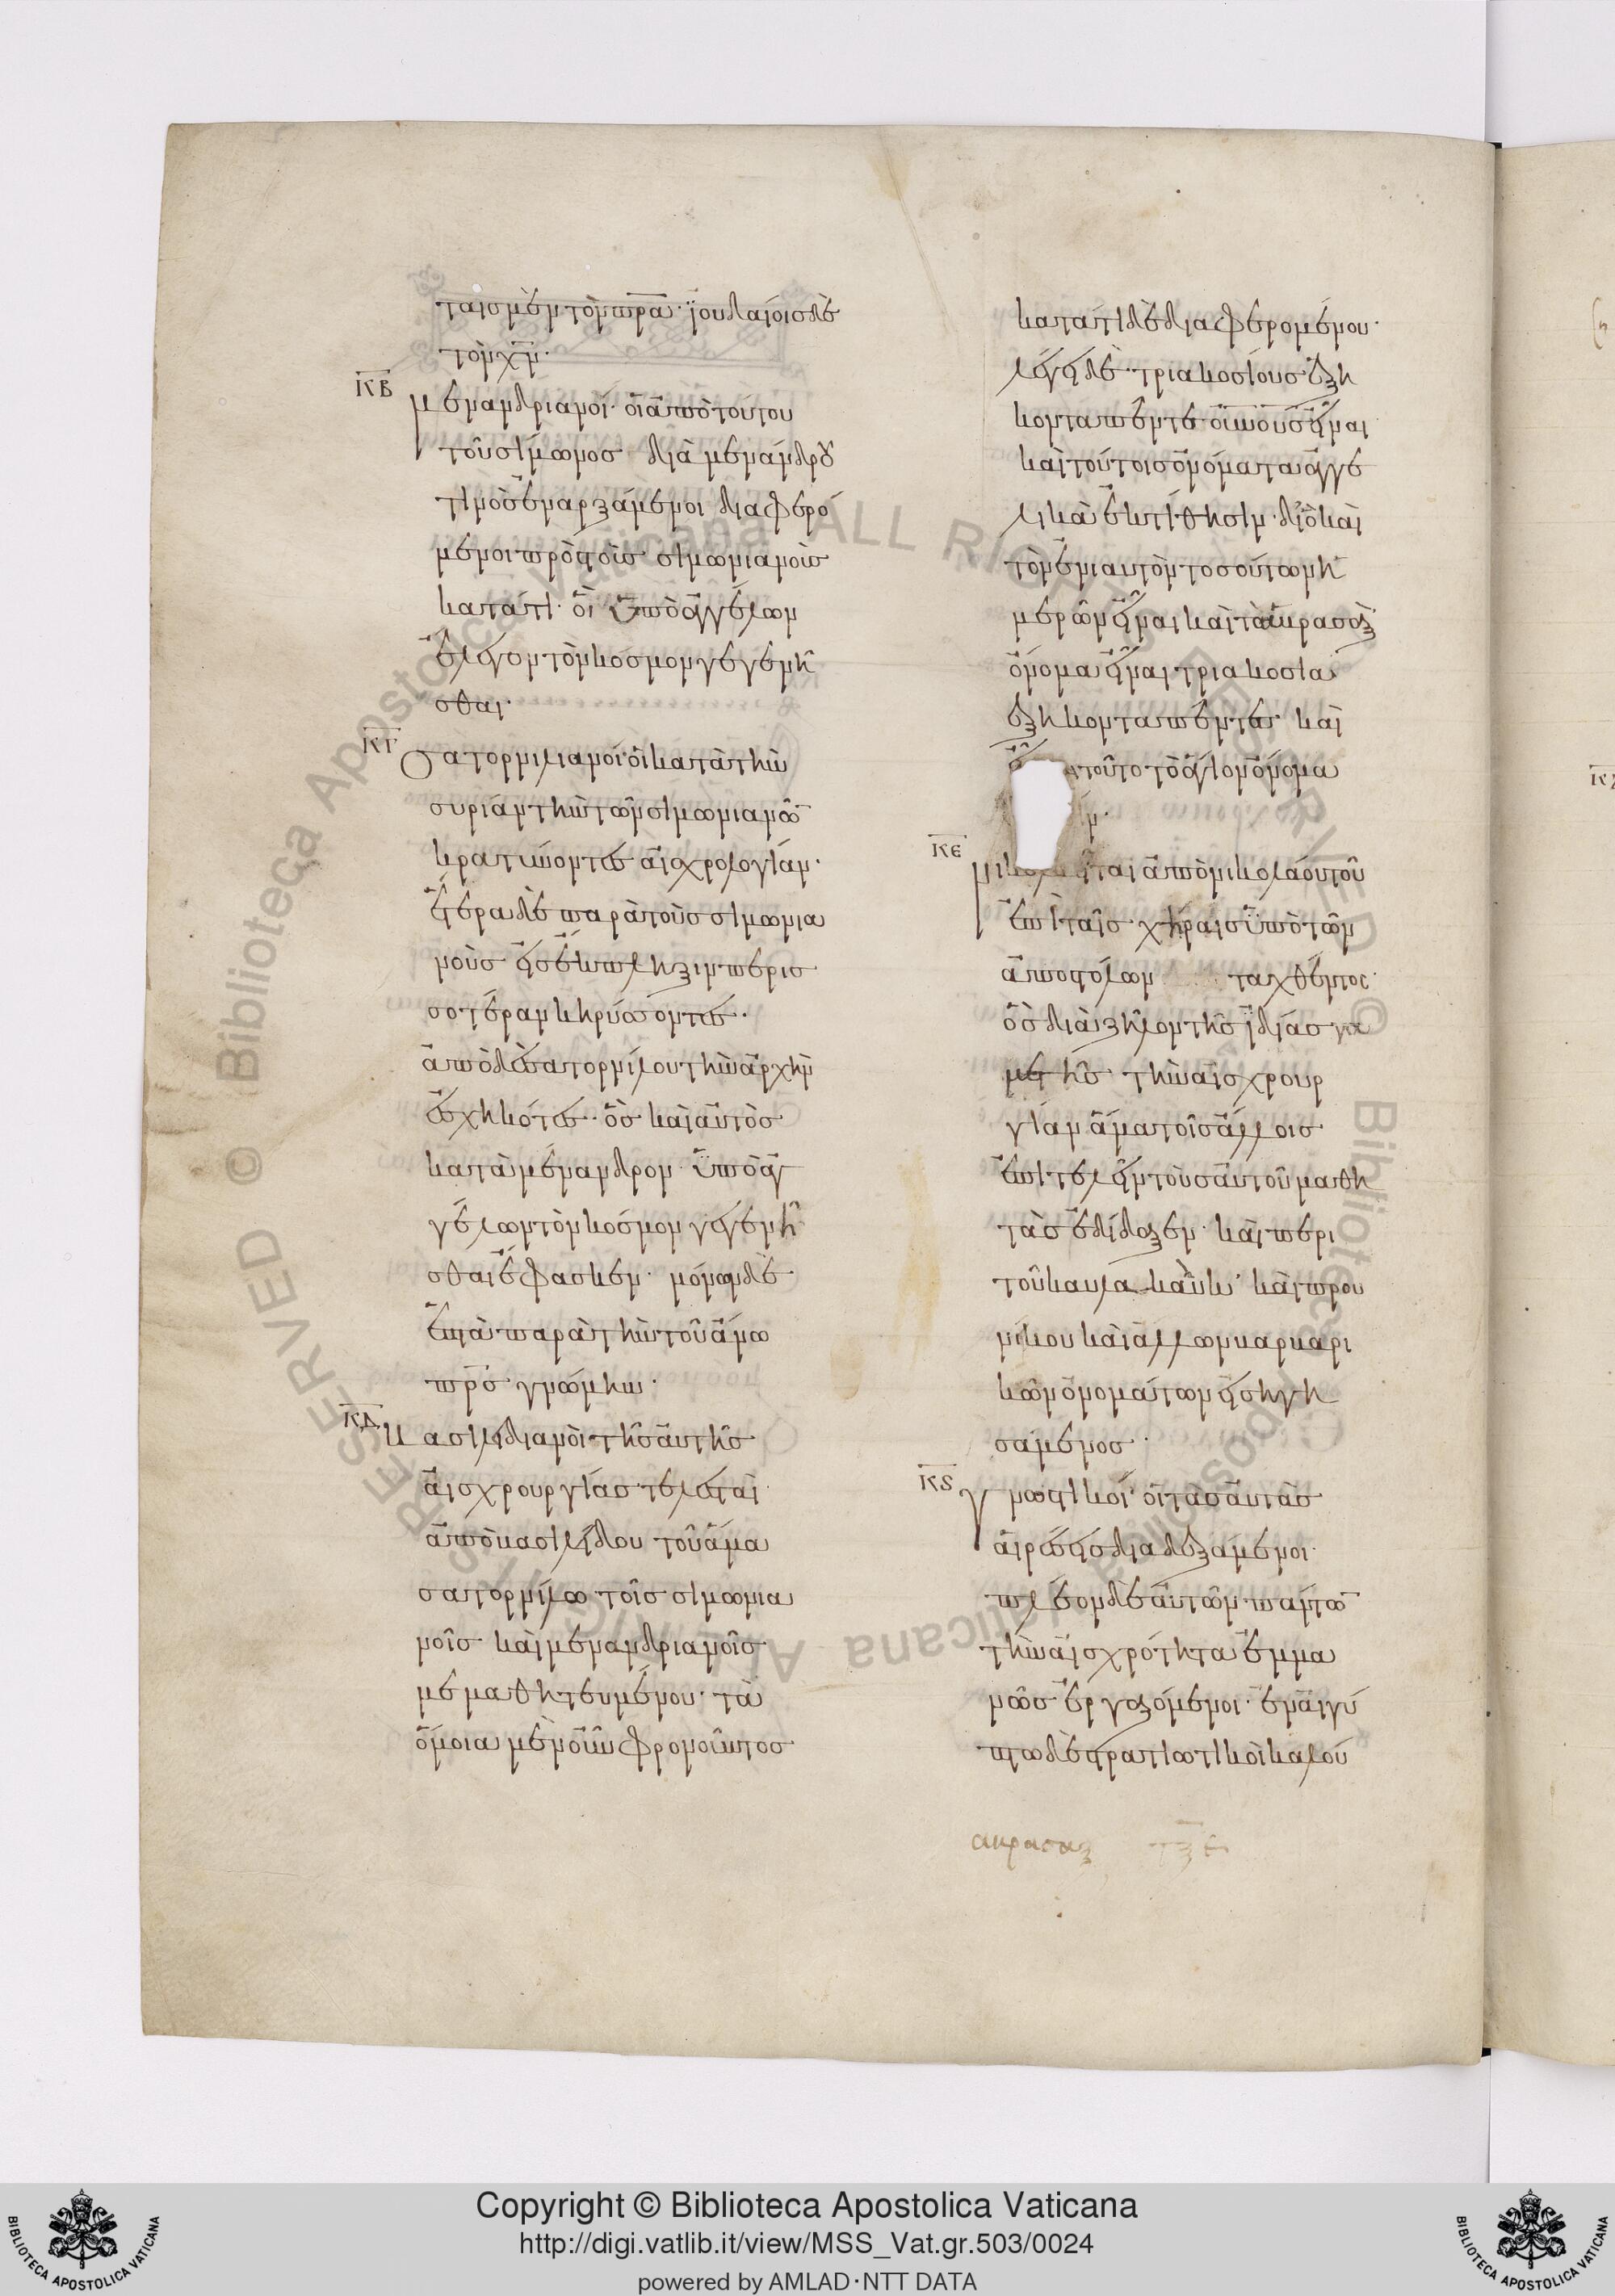 ταις μὲν τὸν πρ̅α̅· ἰουδαίοις δὲ
τὸν χ̅ν̅·
ΚΒ
μενανδριανοί· οἱ ἀπὸ τούτου
τοῦ σίμωνος διὰ μενάνδρου
τινὸς ἐναρξάμενοι διαφερό
μενοι πρὸς τοὺς σιμωνιανοὺς
κατά τι· οἳ ὑπὸ ἀγγέλων
ἔλεγον τὸν κόσμον γεγενῆ
σθαι·
ΚΓ
σατορνιλιανοί· οἱ κατὰ τὴν
συρίαν τὴν τῶν σιμωνιανῶ
κρατύνοντες αἰσχρολογίαν·
ἕτερα δὲ παρὰ τοὺς σιμωνια
νοὺς εἰς ἔκπληξιν περισ
σοτέραν κηρύσσοντες·
ἀπὸ δὲ σατορνίλου τὴν ἀρχὴν
ἐσχηκότες· ὃς καὶ αὐτὸς
κατὰ μένανδρον ὑπὸ ἀγ
γέλων τὸν κόσμον γεγενῆ
σθαι ἔφασκεν· μόνων δὲ
ἑπτὰ παρὰ τὴν τοῦ ἄνω
πρ̅ς̅ γνώμην·
ΚΔ
βασιλιδιανοὶ τῆς αὐτῆς
αἰσχρουργίας τελεταὶ
ἀπὸ βασιλείδου τοῦ ἅμα
σατορνίλω τοῖς σιμωνια
νοῖς καὶ μεναδριανοῖς
μεμαθητευμένου· τὰ
ὅμοια μὲν οὖν φρονοῦντος
κατά τι δὲ διαφερομένου·
λέγει δὲ τριακοσίους ἑξή
κοντα πέντε οὐ̅ν̅ο̅υ̅ς̅ εἶναι
καὶ τούτοις ὀνόματα ἀγγε
λικὰ ἐκτίθησιν· διὸ καὶ
τὸν ἐνιαυτὸν τοσούτων ἡ
μερῶν εἶναι καὶ τὸ ἀβρασὰξ
ὄνομα εἶναι τριακοσία
ἑξηκονταπέντε· καὶ
τοῦτο τὸ ἅγιον ὄνομα
ν·
ΚΕ
νικολαΐται ἀπὸ νικολάου τοῦ
ἐπὶ ταῖς χήραις ὑπὸ τῶν
ἀποστόλων ταχθέντος·
ὃς διὰ ζῆλον τῆς ἰδίας γα
μετῆς τὴν αἰσχρουρ
γίαν ἅμα τοῖς ἄλλοις
ἐπιτελεῖν τοὺς αὐτοῦ μαθη
τὰς ἐδίδαξεν· καὶ περὶ
τοῦ καυλα καὺχ· καὶ πρου
νίκου καὶ ἄλλων βαρβαρι
κῶν ὀνομάτων εἰσηγη
σάμενος·
ΚϚ
γνωστικοί· οἱ τὰς αὐτὰς
αἱρέσεις διαδεξάμενοι·
πλέον δὲ αὐτῶν πάντω
τὴν αἰσχρότητα ἐμμα
νῶς ἐργαζόμενοι· ἐν αἰγύ
πτω δὲ στρατιωτικοὶ καλού
αβρασαξ τξε
Copyright © Biblioteca Apostolica Vaticana
http://digi.vatlib.it/view/MSS_Vat.gr.503/0024
powered by AMLAD·NTT DATA